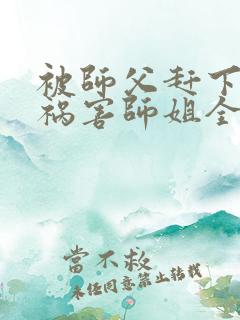 被師父赶下
祸害師姐全
當不救
未经同意禁止转载